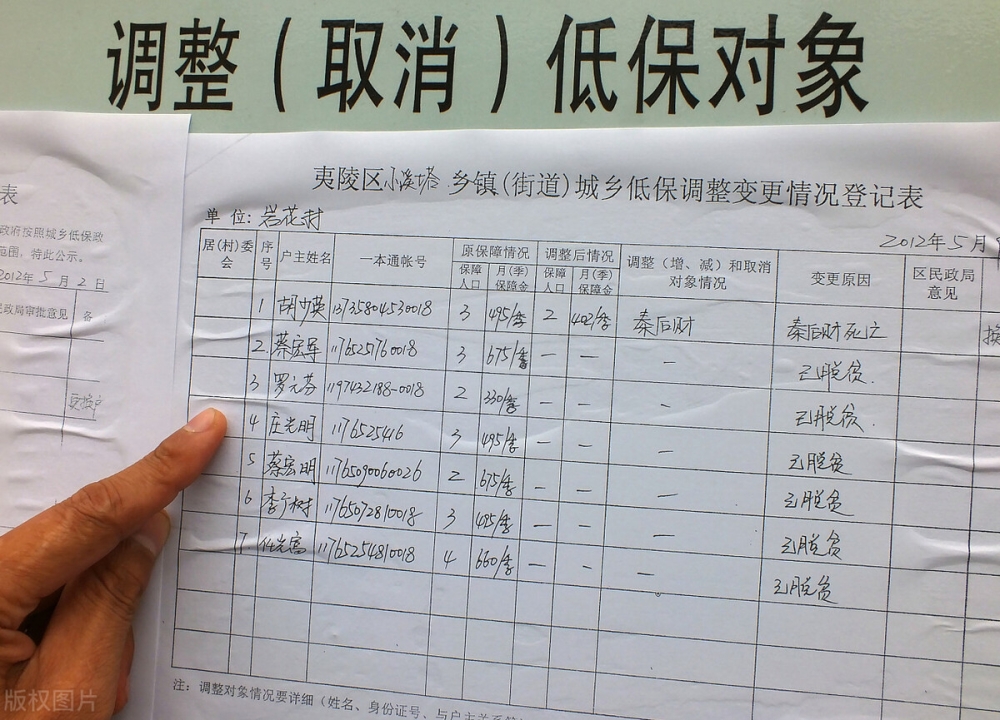 调整(取消)低保对象
表
政府按照城乡低保政
范围,特此公示。
2012年5月2日
民政局审批意见 备
夷陵区小溪塔乡镇(街道)城乡低保调整变更情况登记表
单 位: 岩花村
2012年5月
居(村)委会 序号 户主姓名 一本通帐号 原保障情况 调整后情况 调整(增、减)和取消对象情况 变更原因 区民政局意见
保障人口 月(季)保障金 保障人口 月(季)保障金
1 胡少英 3 495/季 2 402/季 秦后财 秦后财死亡
2 蔡宏军 1176525760018 3 675/季 — — — 已脱贫.
3 罗元芬 1197432188-0018 2 330/季 — — — 已脱贫.
4 庄光明 1176525416 3 495/季 — — — 已脱贫
5 蔡宏明 11765090060026 2 675/季 — — — 已脱贫
6 11765072810018 3 495/季 — — — 已脱贫
7 11765254810018 4 660/季 — — — 已脱贫
注:调整对象情况要详细(姓名、身份证号、与户主关系
版权图片